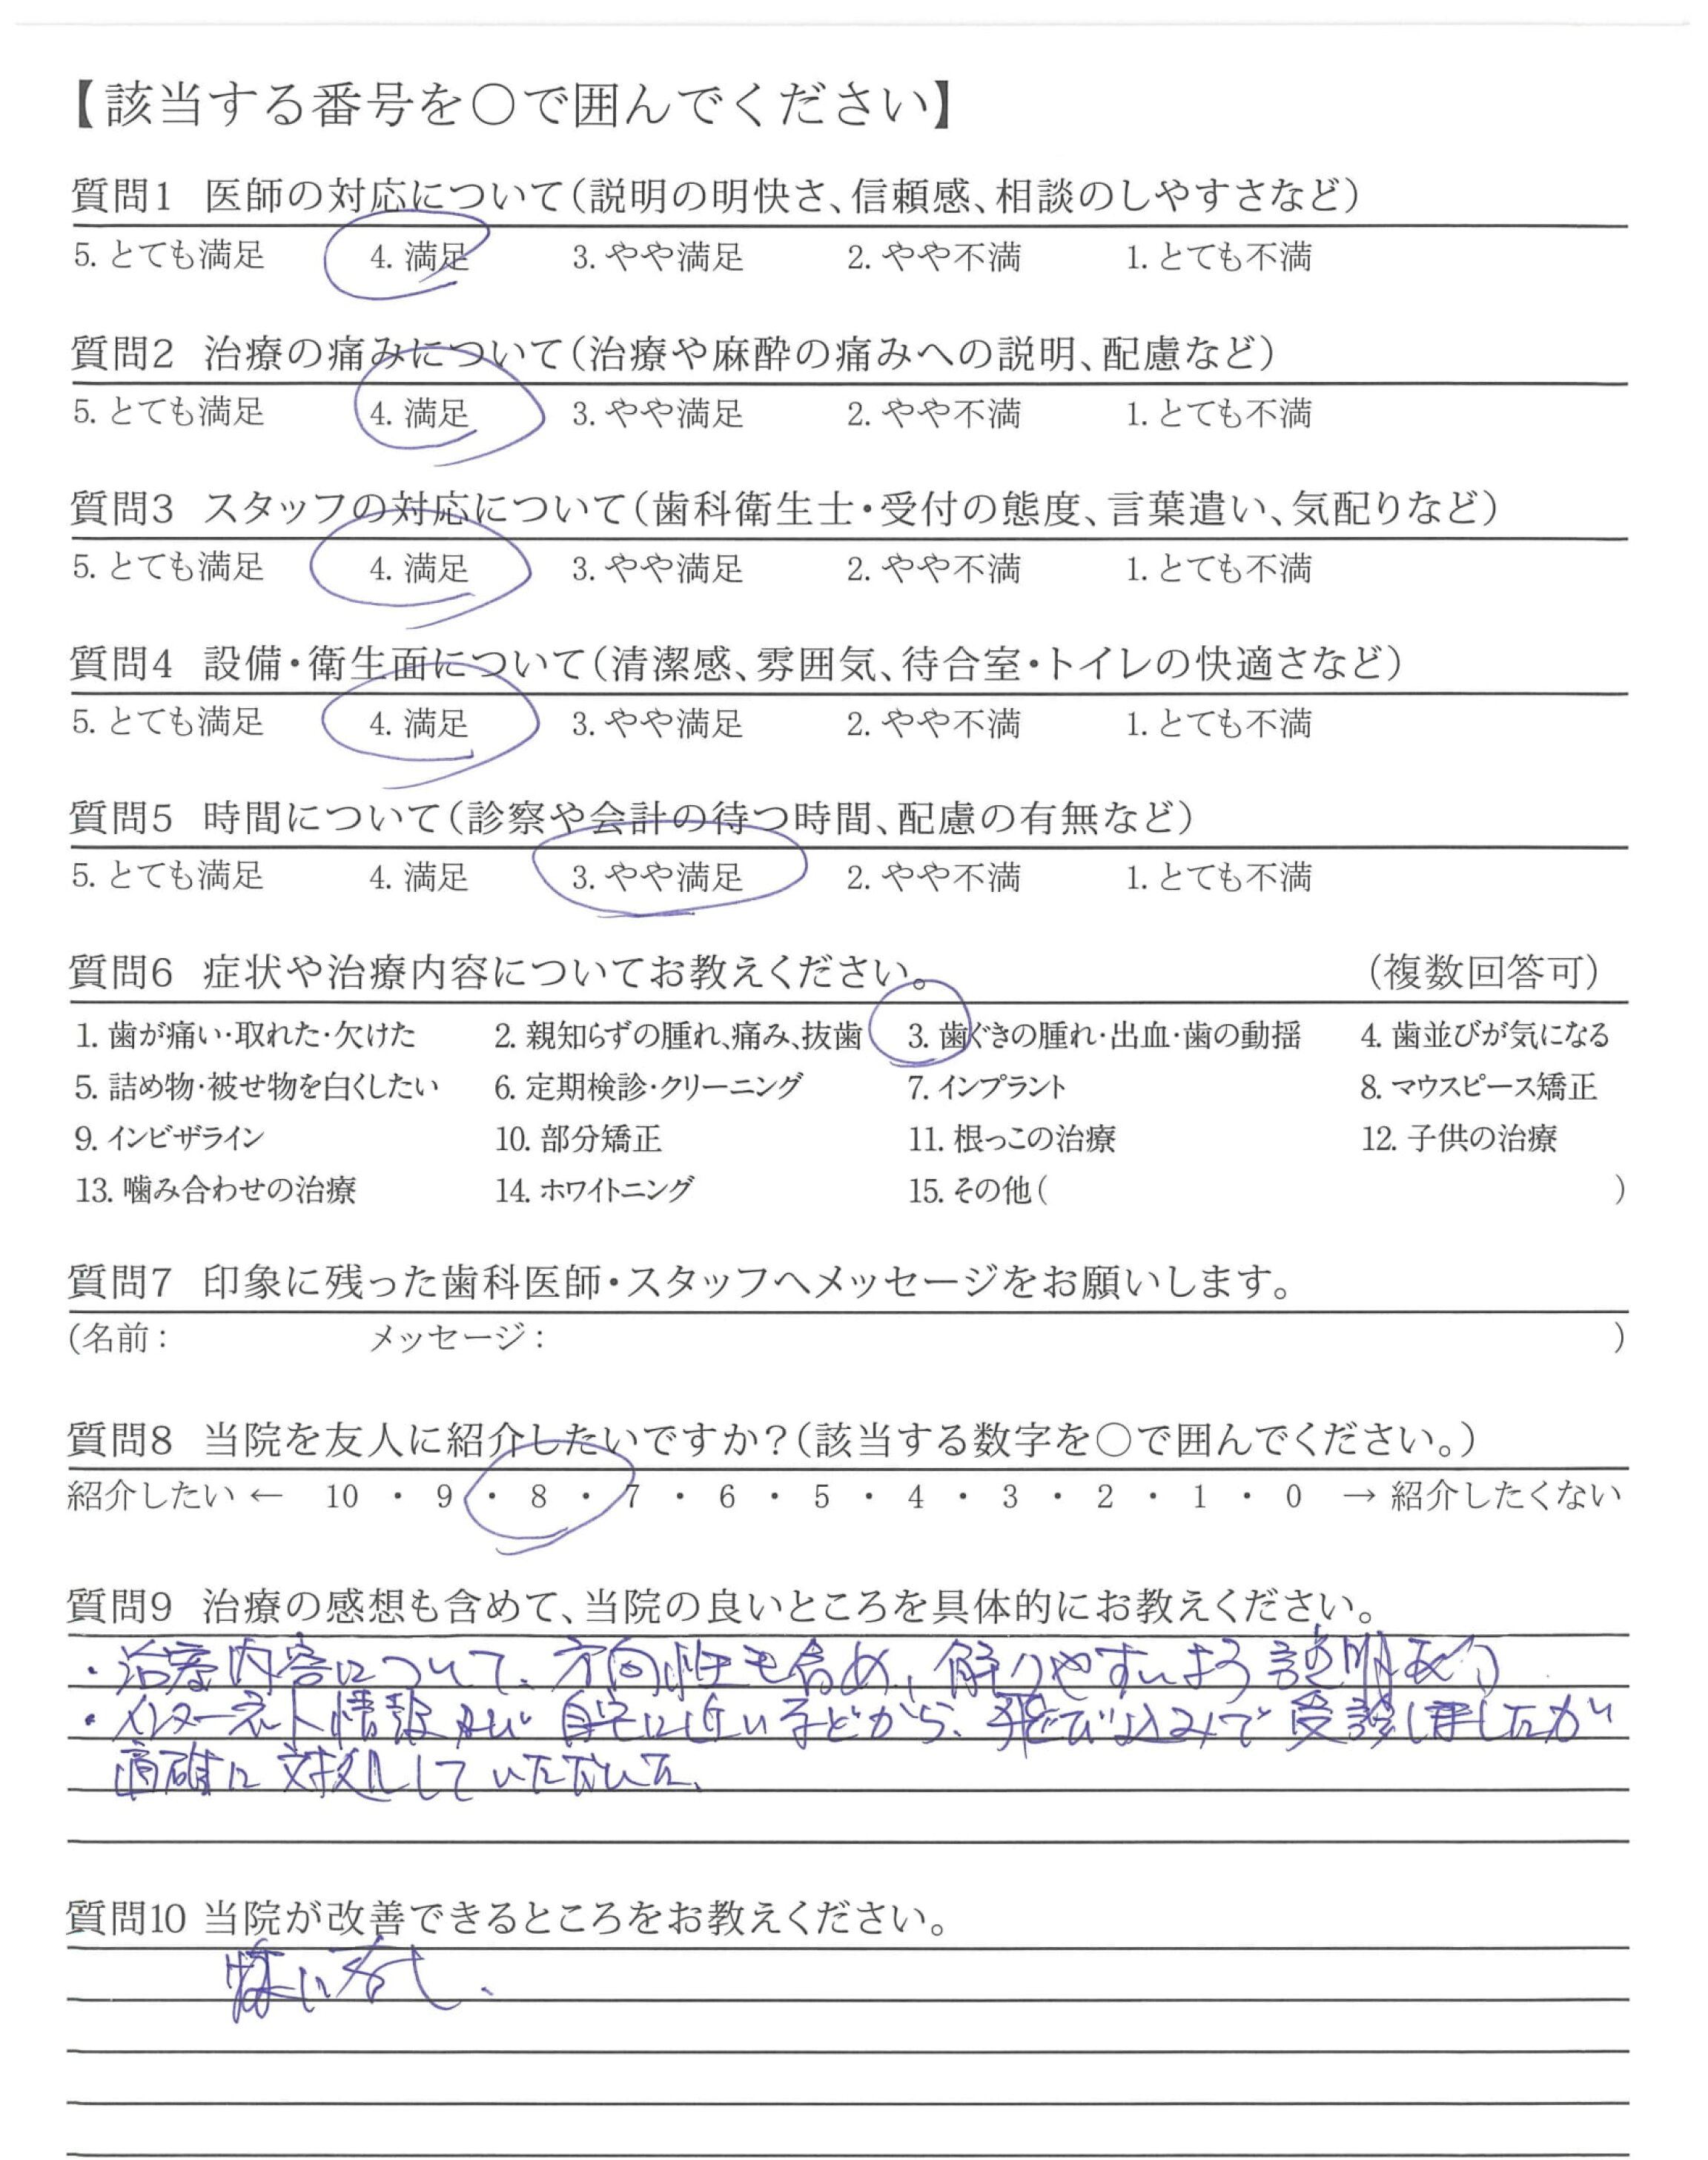 【該当する番号を〇で囲んでください】
質問1 医師の対応について(説明の明快さ、信頼感、相談のしやすさなど)
5. とても満足 4. 満足 3. やや満足 2. やや不満 1. とても不満
質問2 治療の痛みについて(治療や麻酔の痛みへの説明、配慮など)
5. とても満足 4. 満足 3. やや満足 2. やや不満 1. とても不満
質問3 スタッフの対応について(歯科衛生士・受付の態度、言葉遣い、気配りなど)
5. とても満足 4. 満足 3. やや満足 2. やや不満 1. とても不満
質問4 設備・衛生面について(清潔感、雰囲気、待合室・トイレの快適さなど)
5. とても満足 4. 満足 3. やや満足 2. やや不満 1. とても不満
質問5 時間について(診察や会計の待つ時間、配慮の有無など)
5. とても満足 4. 満足 3. やや満足 2. やや不満 1. とても不満
質問6 症状や治療内容についてお教えください。 (複数回答可)
1. 歯が痛い・取れた・欠けた 2. 親知らずの腫れ、痛み、抜歯 3. 歯ぐきの腫れ・出血・歯の動揺 4. 歯並びが気になる
5. 詰め物・被せ物を白くしたい 6. 定期検診・クリーニング 7. インプラント 8. マウスピース矯正
9. インビザライン 10. 部分矯正 11. 根っこの治療 12. 子供の治療
13. 噛み合わせの治療 14. ホワイトニング 15. その他( )
質問7 印象に残った歯科医師・スタッフへメッセージをお願いします。
(名前: メッセージ: )
質問8 当院を友人に紹介したいですか?(該当する数字を〇で囲んでください。)
紹介したい ← 10 ・ 9 ・ 8 ・ 7 ・ 6 ・ 5 ・ 4 ・ 3 ・ 2 ・ 1 ・ 0 → 紹介したくない
質問9 治療の感想も含めて、当院の良いところを具体的にお教えください。
・治療内容について、方向性も含め、解りやすいよう説明あり
・インターネット情報及び自宅に近い等から、飛び込みで受診しましたが
適確に対処していただいた。
質問10 当院が改善できるところをお教えください。
特になし.